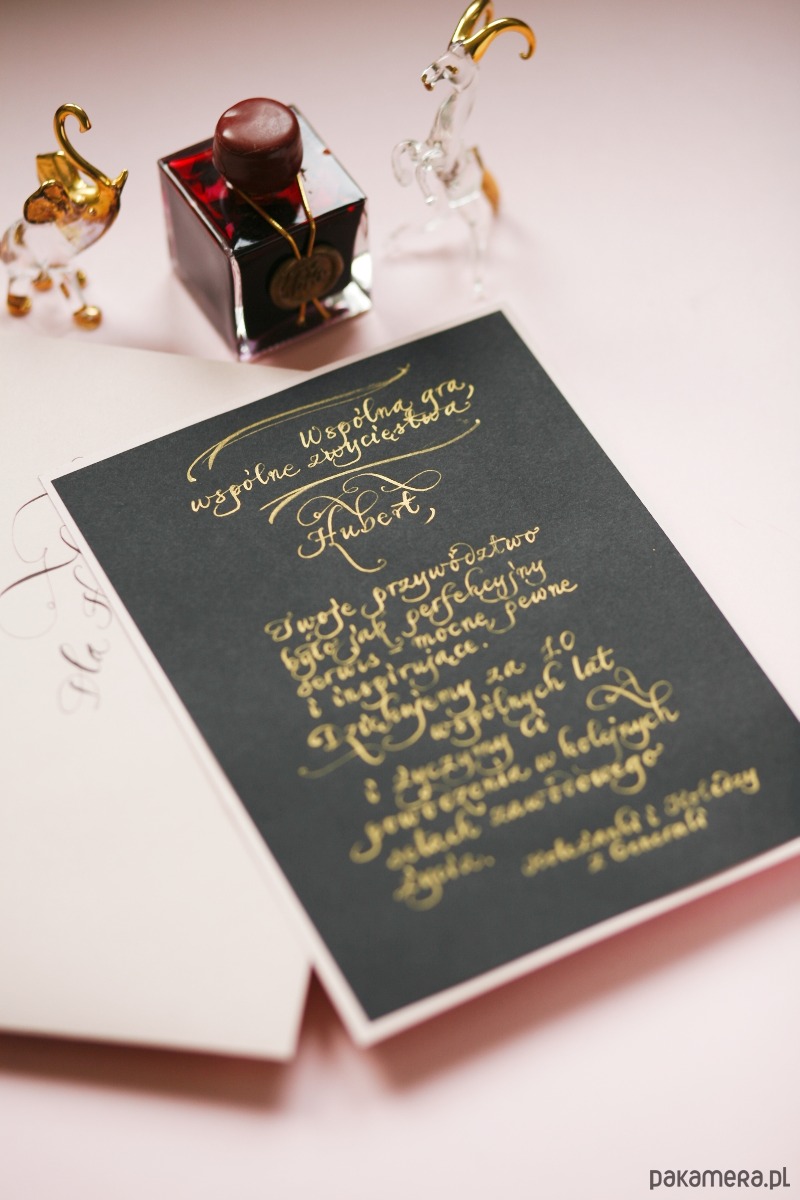 Wspólna gra,
wspólne zwycięstwa,
Hubert,
Twoje przywództwo
było jak perfekcyjny
serwis - mocne, pewne
i inspirujące.
Dziękujemy za 10
wspólnych lat
i życzymy Ci
powodzenia w kolejnych
setach zawodowego
życia.
Koleżanki i Koledzy
z Generali
Dla H
pakamera.pl